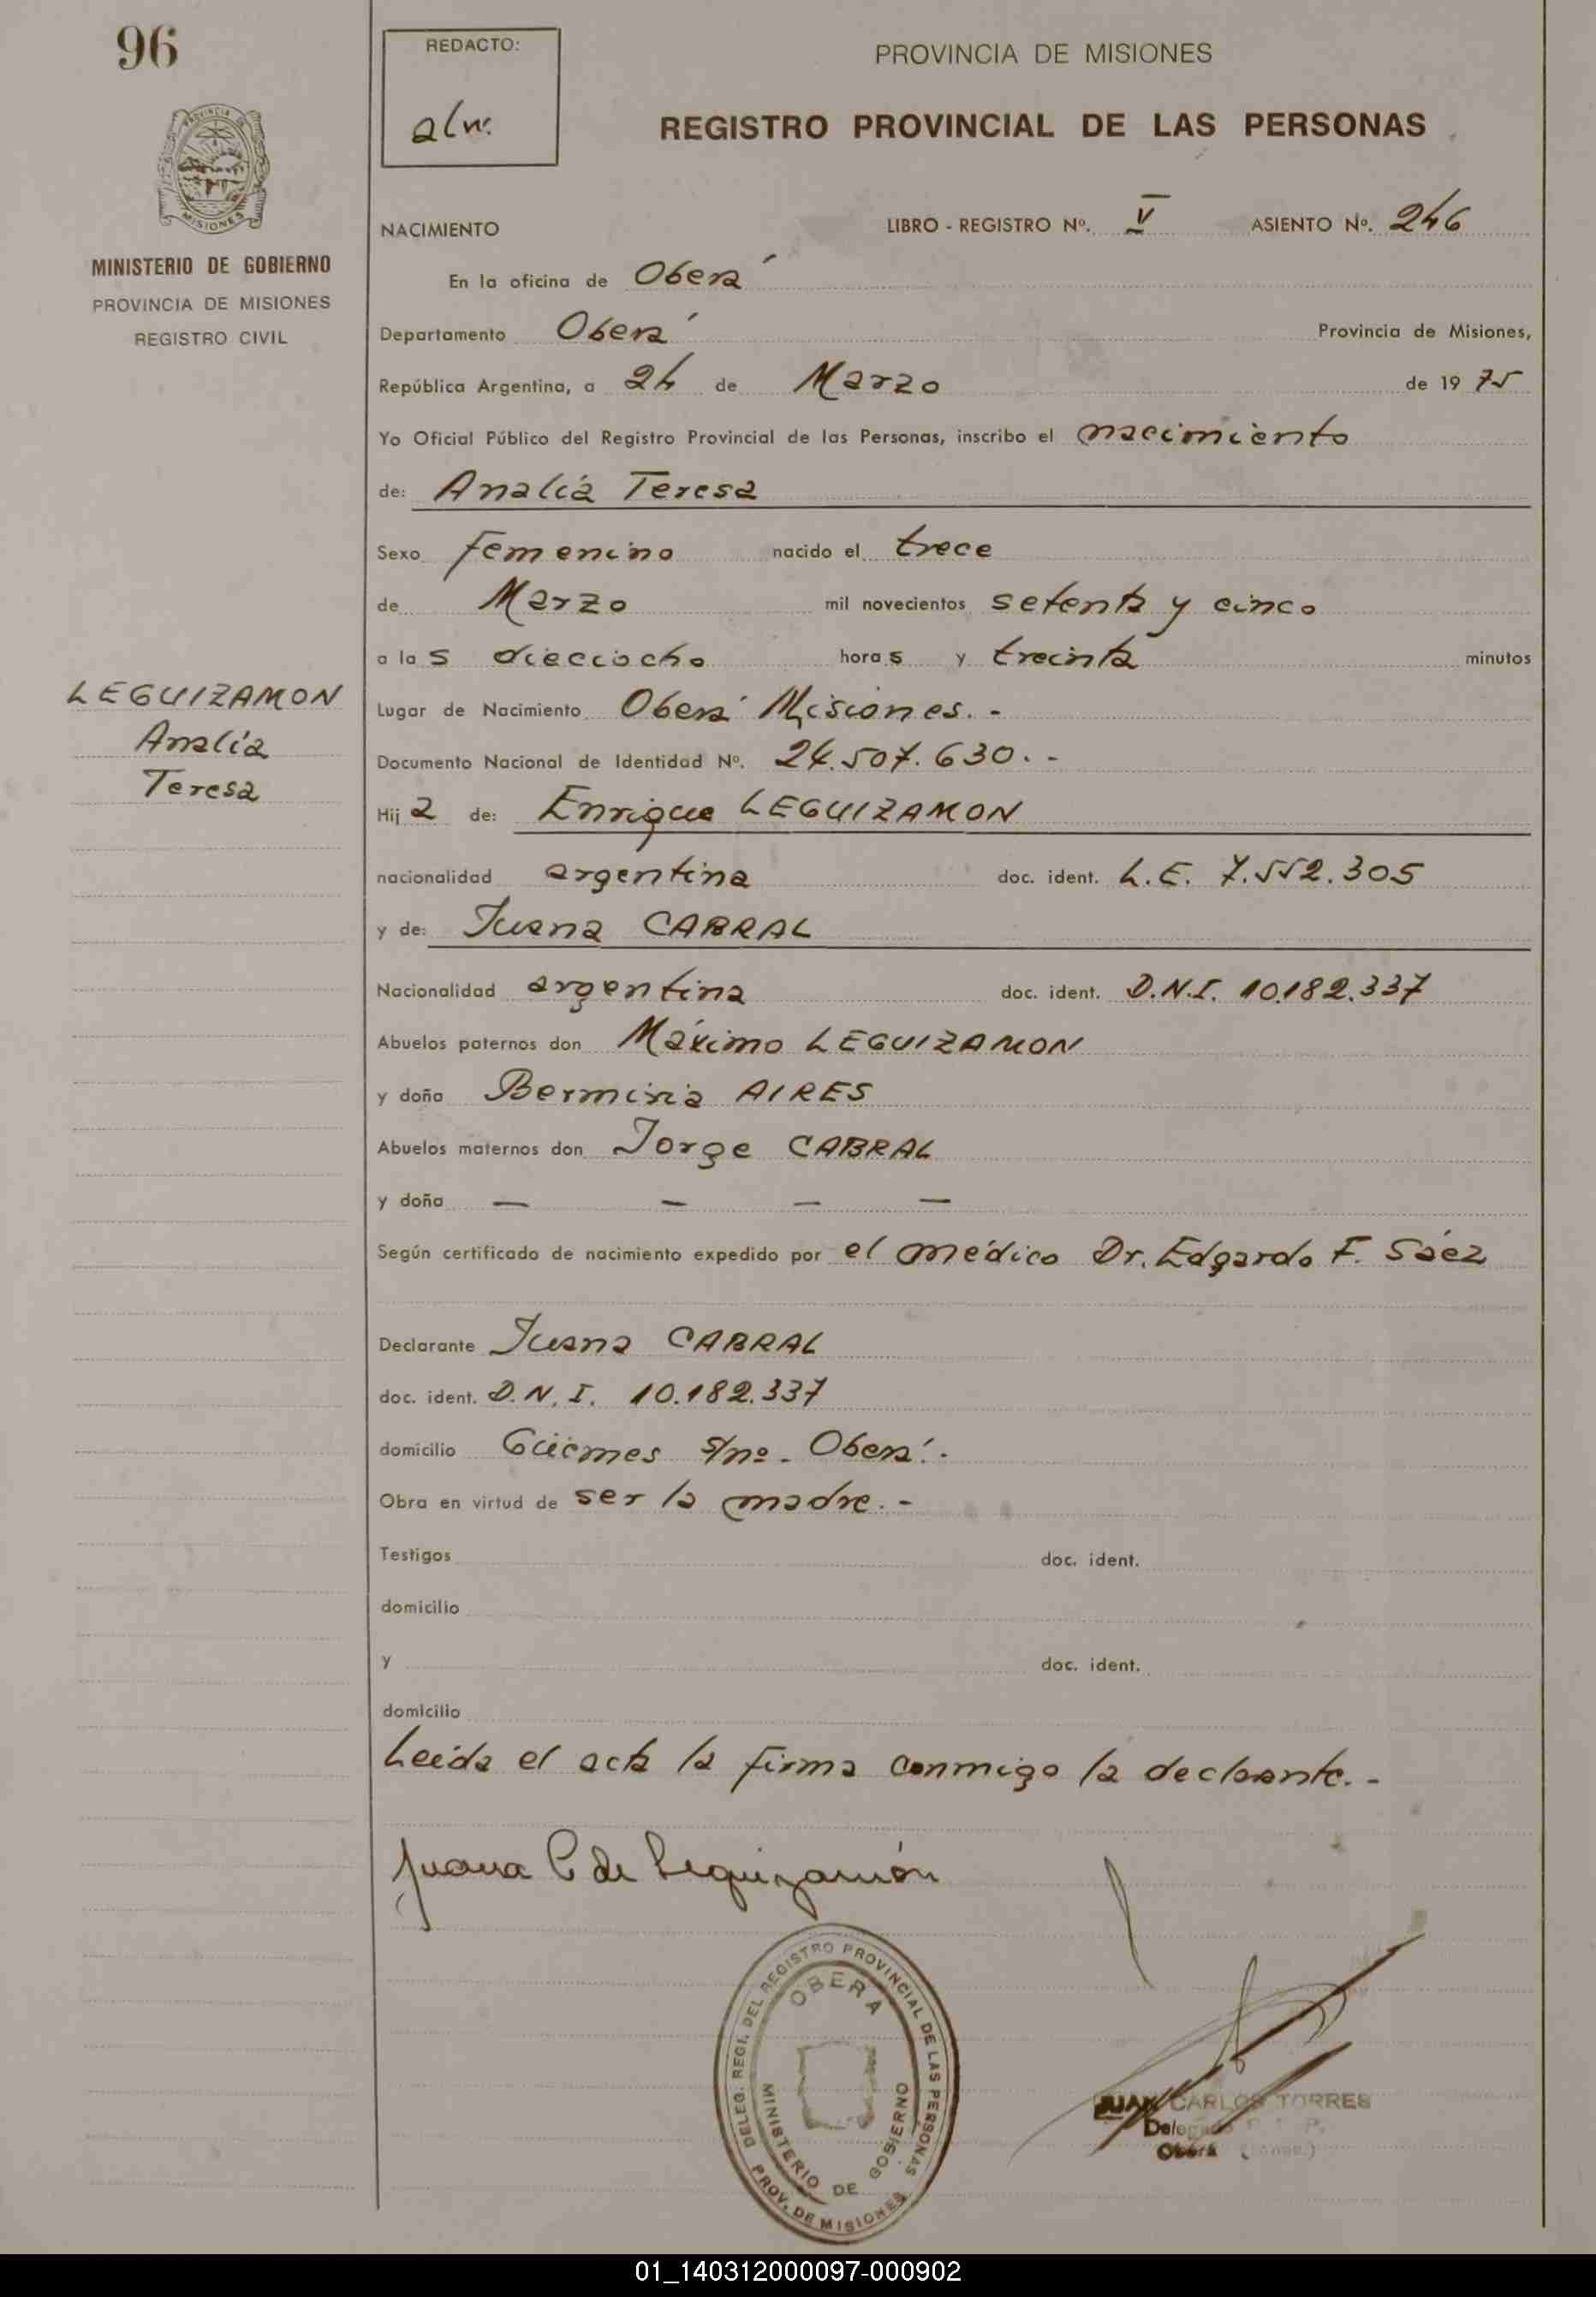 96
PROVINCIA DE
MISIONES
MINISTERIO DE GOBIERNO
PROVINCIA DE MISIONES
REGISTRO CIVIL
LEGUIZAMON
Analía
Teresa
REDACTO:
PROVINCIA DE MISIONES
REGISTRO PROVINCIAL DE LAS PERSONAS
NACIMIENTO LIBRO - REGISTRO Nº. V ASIENTO Nº. 246
En la oficina de Oberá
Departamento Oberá Provincia de Misiones,
República Argentina, a 24 de Marzo de 1975
Yo Oficial Público del Registro Provincial de las Personas, inscribo el nacimiento
de: Analía Teresa
Sexo Femenino nacido el trece
de Marzo mil novecientos setenta y cinco
a las dieciocho horas y treinta minutos
Lugar de Nacimiento Oberá Misiones.-
Documento Nacional de Identidad Nº. 24.507.630.-
Hija de: Enrique LEGUIZAMON
nacionalidad argentina doc. ident. L.E. 7.552.305
y de: Juana CABRAL
Nacionalidad argentina doc. ident. D.N.I. 10.182.337
Abuelos paternos don Máximo LEGUIZAMON
y doña Berminia AIRES
Abuelos maternos don Jorge CABRAL
y doña — — — —
Según certificado de nacimiento expedido por el médico Dr. Edgardo F. Sáez
Declarante Juana CABRAL
doc. ident. D.N.I. 10.182.337
domicilio Güemes s/nº - Oberá.-
Obra en virtud de ser la madre.-
Testigos doc. ident.
domicilio
y doc. ident.
domicilio
Leída el acta la firma conmigo la declarante.-
Juana C de Leguizamón
DELEG. REGI. DEL REGISTRO PROVINCIAL DE LAS PERSONAS
OBERA
MINISTERIO DE GOBIERNO
PROV. DE MISIONES
JUAN CARLOS TORRES
Delegado
Oberá
01_140312000097-000902